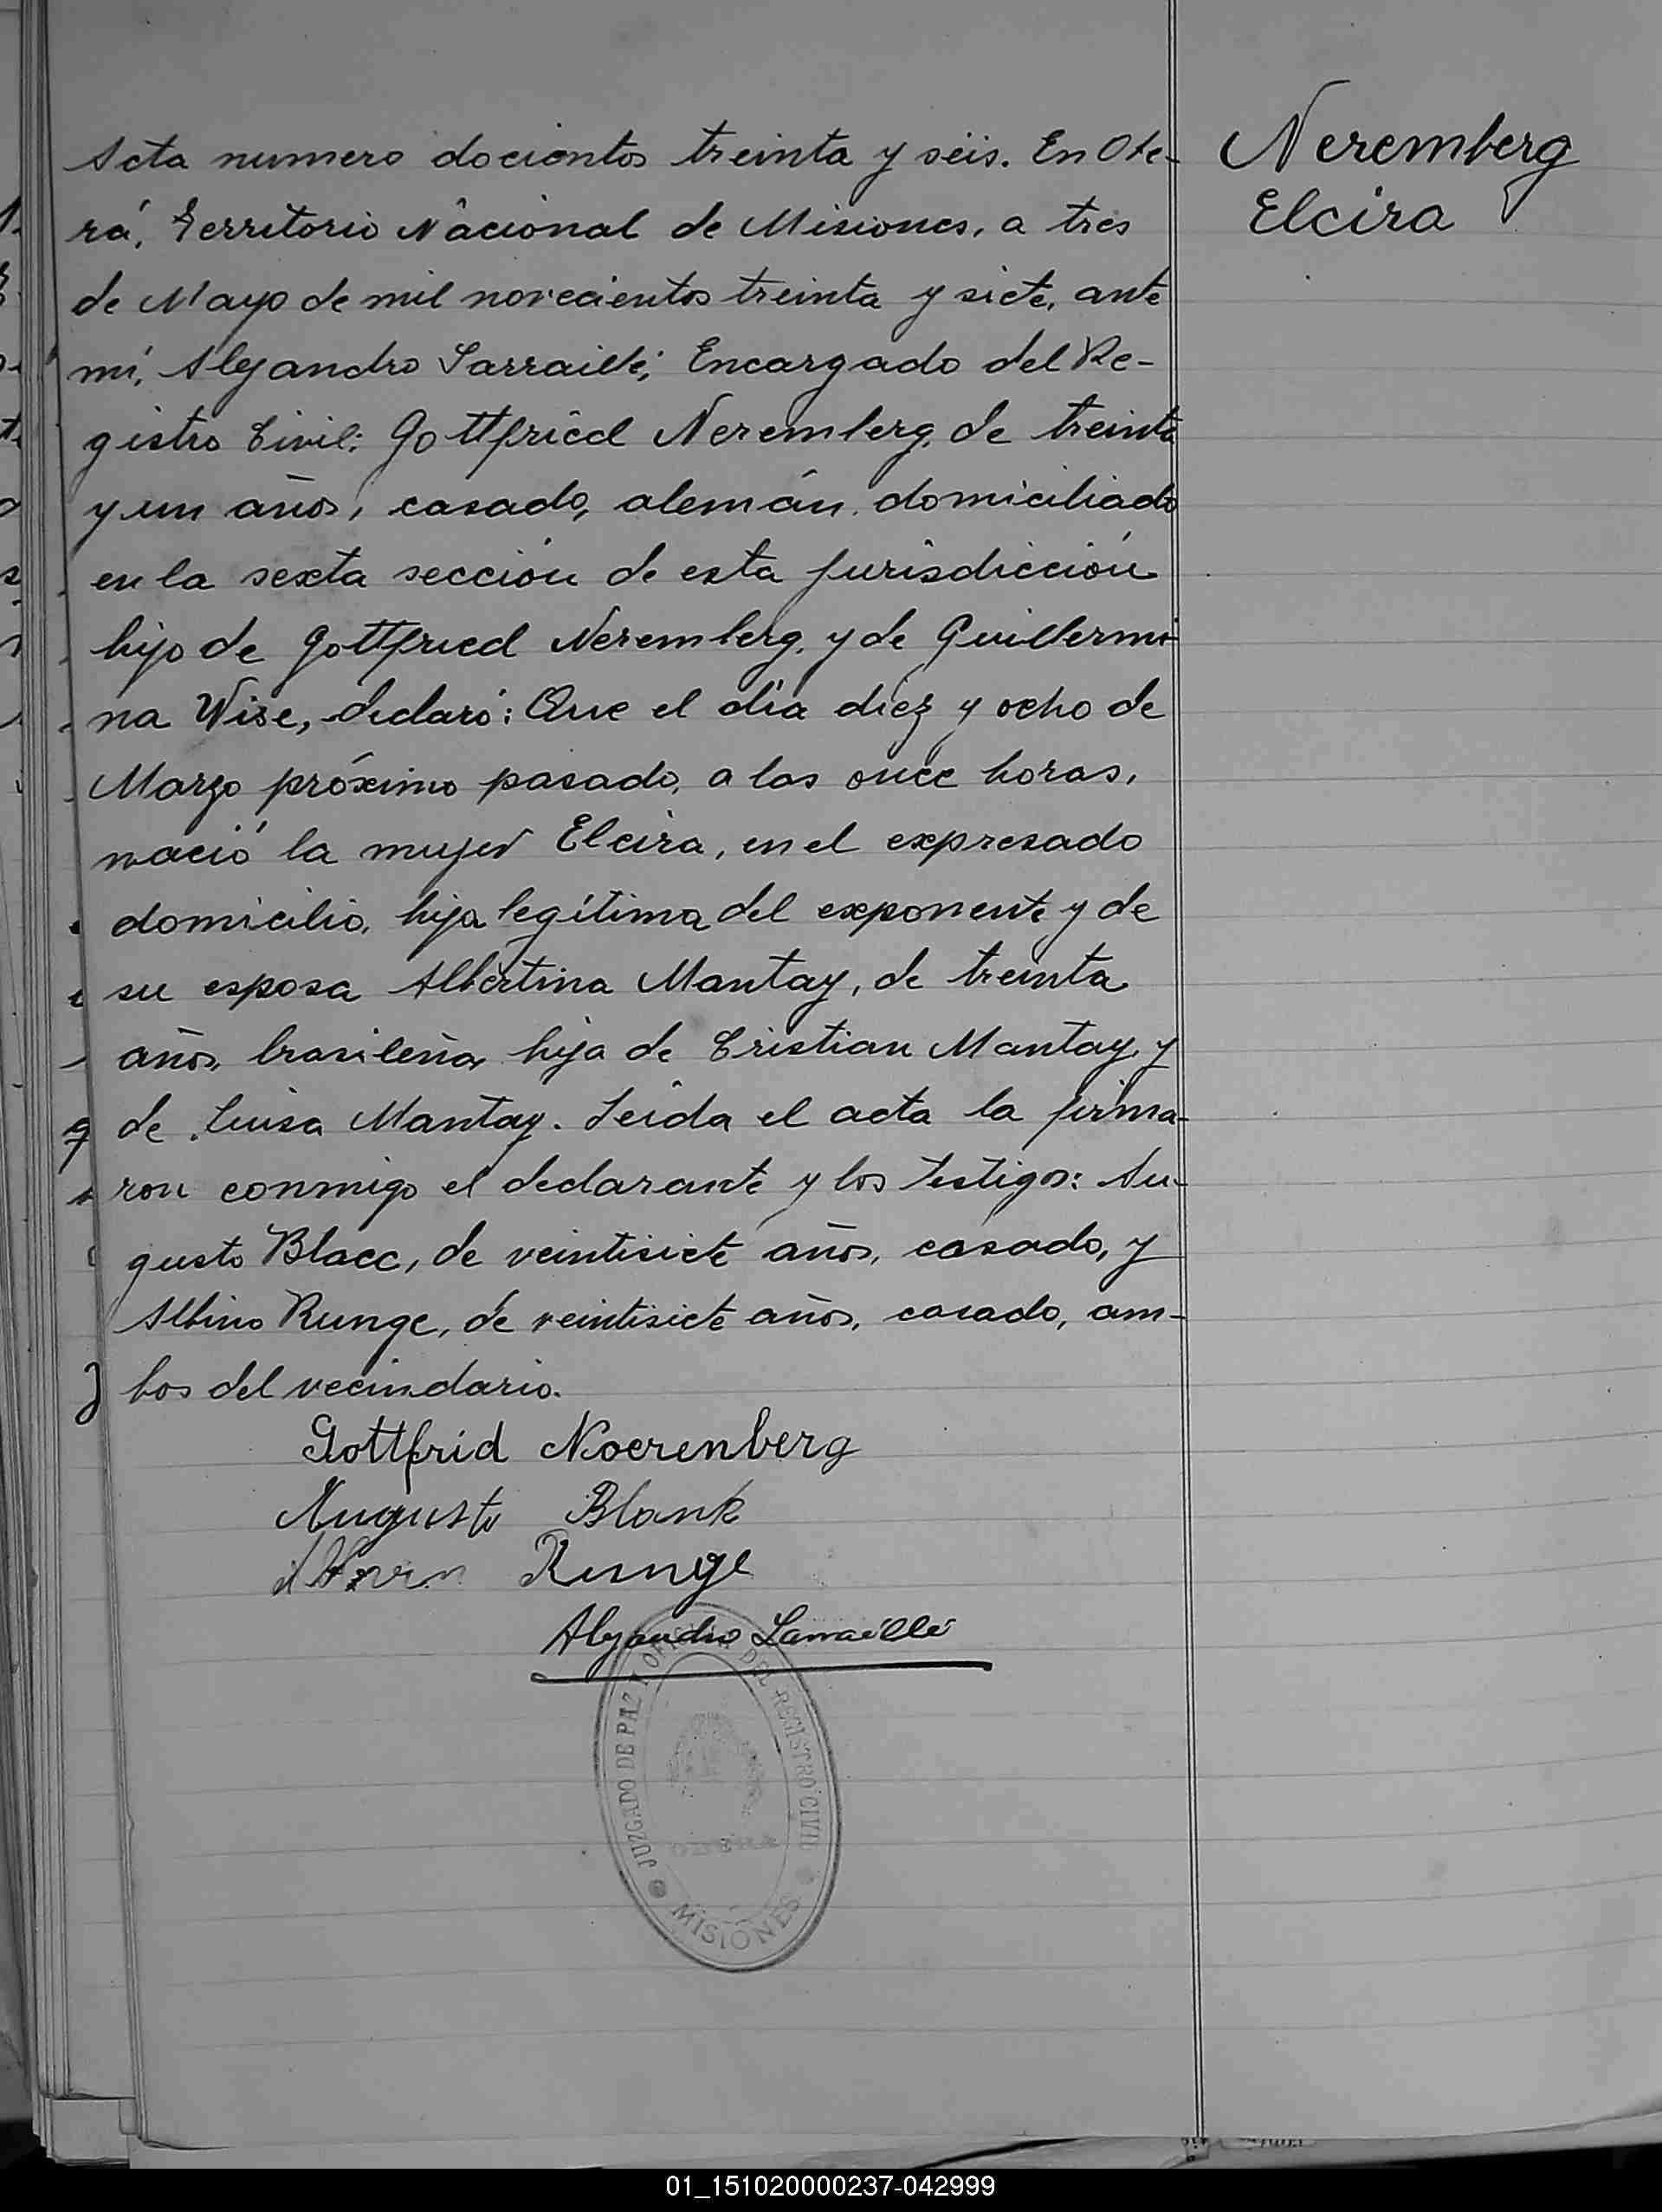 Neremberg
Elcira
Acta numero docientos treinta y seis. En Obe-
rá, Territorio Nacional de Misiones, a tres
de Mayo de mil novecientos treinta y siete, ante
mí, Alejandro Larraillé, Encargado del Re-
gistro Civil: Gottfried Neremberg, de treinta
y un años, casado, alemán, domiciliado
en la sexta sección de esta jurisdicción
hijo de Gottfried Neremberg, y de Guillermi-
na Wise, declaró: Que el día diez y ocho de
Marzo próximo pasado, a las once horas,
nació la mujer Elcira, en el expresado
domicilio, hija legítima del exponente y de
su esposa Albertina Mantay, de treinta
años, brasileña, hija de Cristian Mantay, y
de Luisa Mantay. Leída el acta la firma-
ron conmigo el declarante y los testigos: Au-
gusto Blacc, de veintisiete años, casado, y
Albino Runge, de veintisiete años, casado, am-
bos del vecindario.
Gottfrid Noerenberg
Augusto Blank
Runge
Alejandro Larraillé
JUZGADO DE PAZ Y OFICINA DEL REGISTRO CIVIL
OBERA
MISIONES
01_151020000237-042999